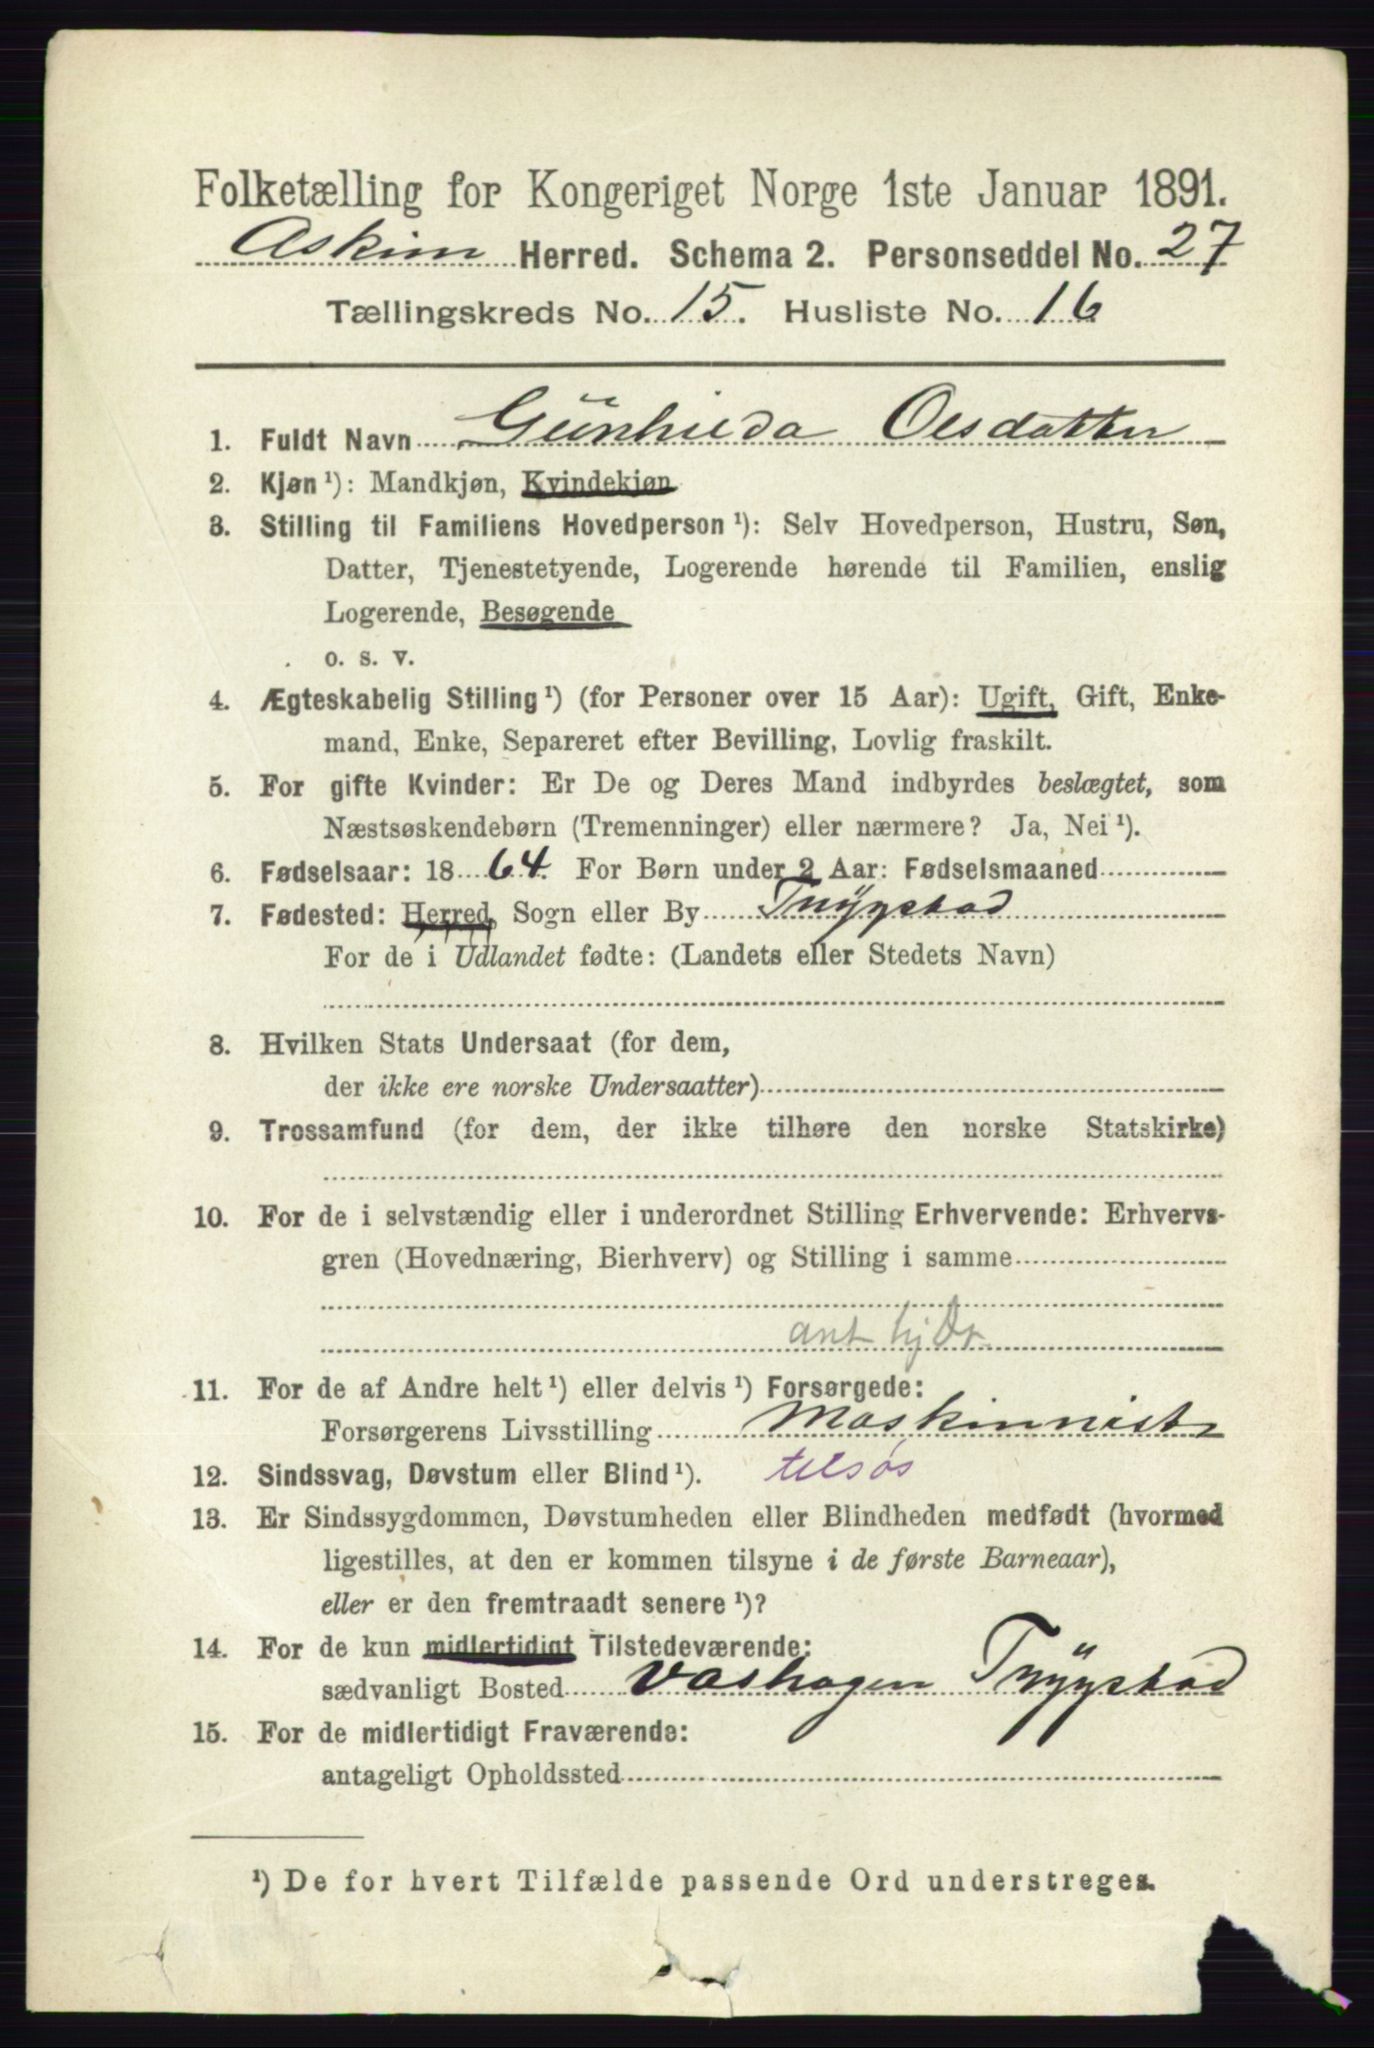 Folketælling for Kongeriget Norge 1ste Januar 1891.
Askim Herred. Schema 2. Personseddel No. 27
Tællingskreds No. 15. Husliste No. 16
1. Fuldt Navn Gunhilda Olsdatter
2. Kjøn ¹): Mandkjøn, Kvindekjøn
3. Stilling til Familiens Hovedperson ¹): Selv Hovedperson, Hustru, Søn,
Datter, Tjenestetyende, Logerende hørende til Familien, enslig
Logerende, Besøgende
o. s. v.
4. Ægteskabelig Stilling ¹) (for Personer over 15 Aar): Ugift, Gift, Enke-
mand, Enke, Separeret efter Bevilling, Lovlig fraskilt.
5. For gifte Kvinder: Er De og Deres Mand indbyrdes beslægtet, som
Næstsøskendebørn (Tremenninger) eller nærmere? Ja, Nei ¹).
6. Fødselsaar: 1864. For Børn under 2 Aar: Fødselsmaaned
7. Fødested: Herred, Sogn eller By Trygstad
For de i Udlandet fødte: (Landets eller Stedets Navn)
8. Hvilken Stats Undersaat (for dem,
der ikke ere norske Undersaatter)
9. Trossamfund (for dem, der ikke tilhøre den norske Statskirke)
10. For de i selvstændig eller i underordnet Stilling Erhvervende: Erhvervs-
gren (Hovednæring, Bierhverv) og Stilling i samme
ant hj Dr
11. For de af Andre helt ¹) eller delvis ¹) Forsørgede:
Forsørgerens Livsstilling Maskinnist
12. Sindssvag, Døvstum eller Blind ¹).
13. Er Sindssygdommen, Døvstumheden eller Blindheden medfødt (hvormed
ligestilles, at den er kommen tilsyne i de første Barneaar),
eller er den fremtraadt senere ¹)?
14. For de kun midlertidigt Tilstedeværende:
sædvanligt Bosted Vashagen Trygstad
15. For de midlertidigt Fraværende:
antageligt Opholdssted
¹) De for hvert Tilfælde passende Ord understreges.